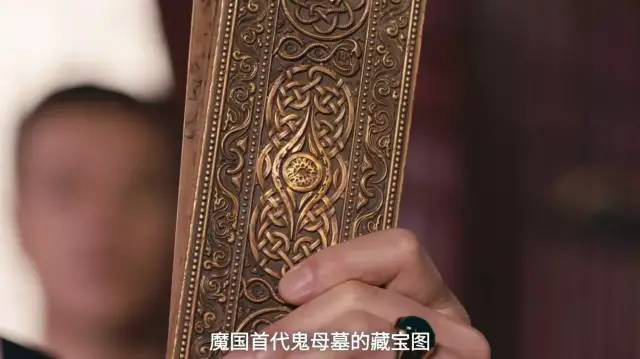 魔国首代鬼母墓的藏宝图